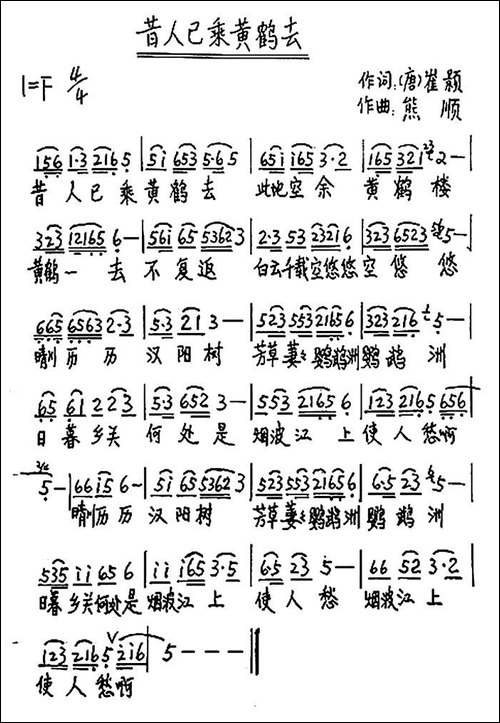 昔人已乘黄鹤去
1=F 4/4
作词:(唐)崔颢
作曲:熊 顺
156 1·3 2165 | 5i 653 5·65 | 65i i65 3·2 | 165 321 2—
昔 人已 乘黄鹤去 此地空余 黄鹤楼
323 12165 6— | 561 65 5362 3 | 2·3 53 23216 | 323 6523 5—
黄鹤一去 不复返 白云千载空悠悠空悠悠
665 6563 2·3 | 5·3 2i 3— | 523 553 21656 | 323 216 5—
晴川历历 汉阳树 芳草萋萋鹦鹉洲鹦鹉洲
65 61 223 | 5·3 652 3— | 553 2165 6 | 123 2165 656
日暮乡关 何处是 烟波江上使人愁啊
5— | 66 i5 6— | 5i 65 5362 3 | 523 553 21656 | 6·5 23 5—
晴川历历 汉阳树 芳草萋萋鹦鹉洲鹦鹉洲
535 ii 65 6 | ii i65 3·5 | 6·5 23 5— | 66 52 3·2
日暮乡关何处是 烟波江上 使人愁 烟波江上
123 2165 2i6 | 5———
使人愁啊